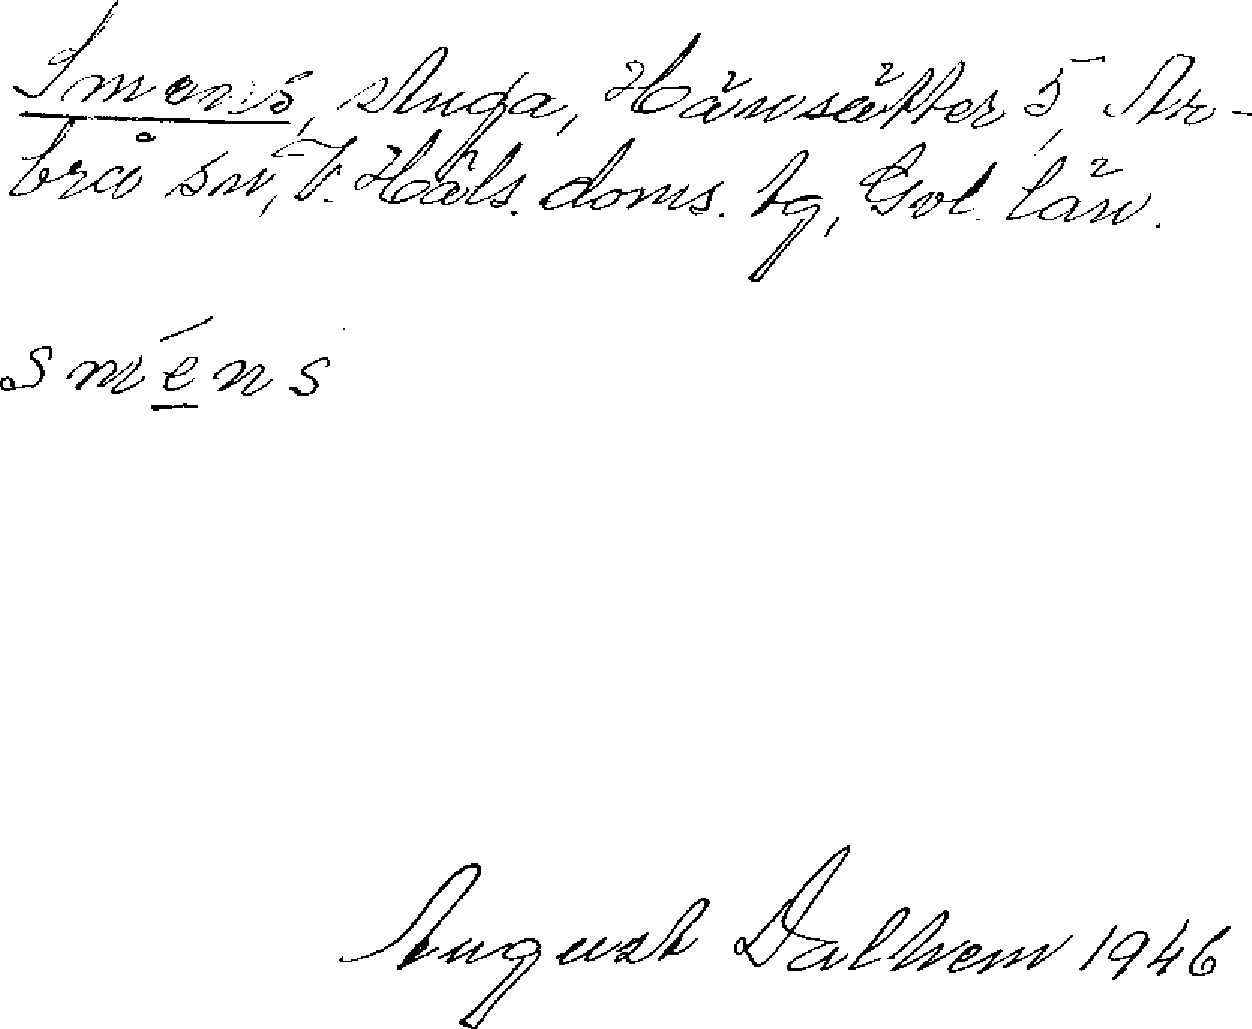 Smens, stuga, Hänsätter 5, Ar-
brå sn, V. Häls. doms. tg, Gvl. län.
smens
August Dalhem 1946